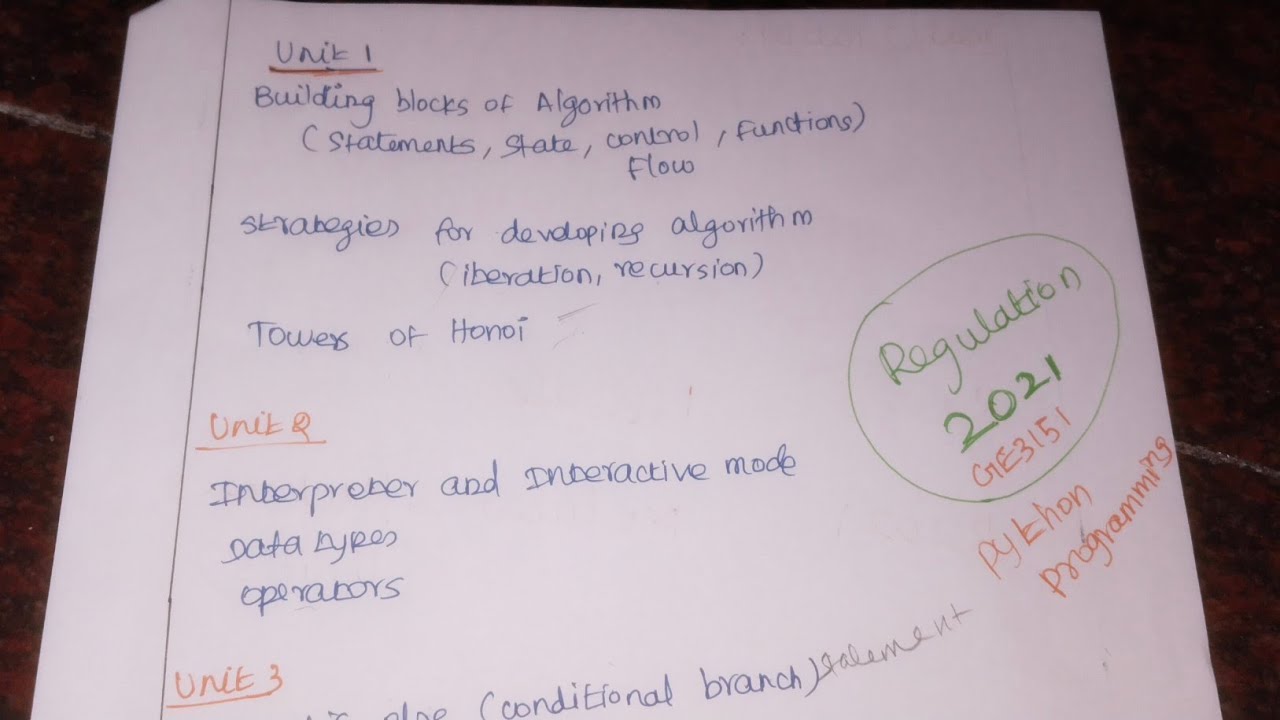 Unit 1
Building blocks of Algorithm
(Statements, State, control, Functions)
Flow
Strategies for developing algorithm
(iteration, recursion)
Towers of Honoi
Regulation
2021
GE3151
Python
Programming
Unit 2
Interpreter and Interactive mode
Data types
operators
Unit 3
else (conditional branch) statement